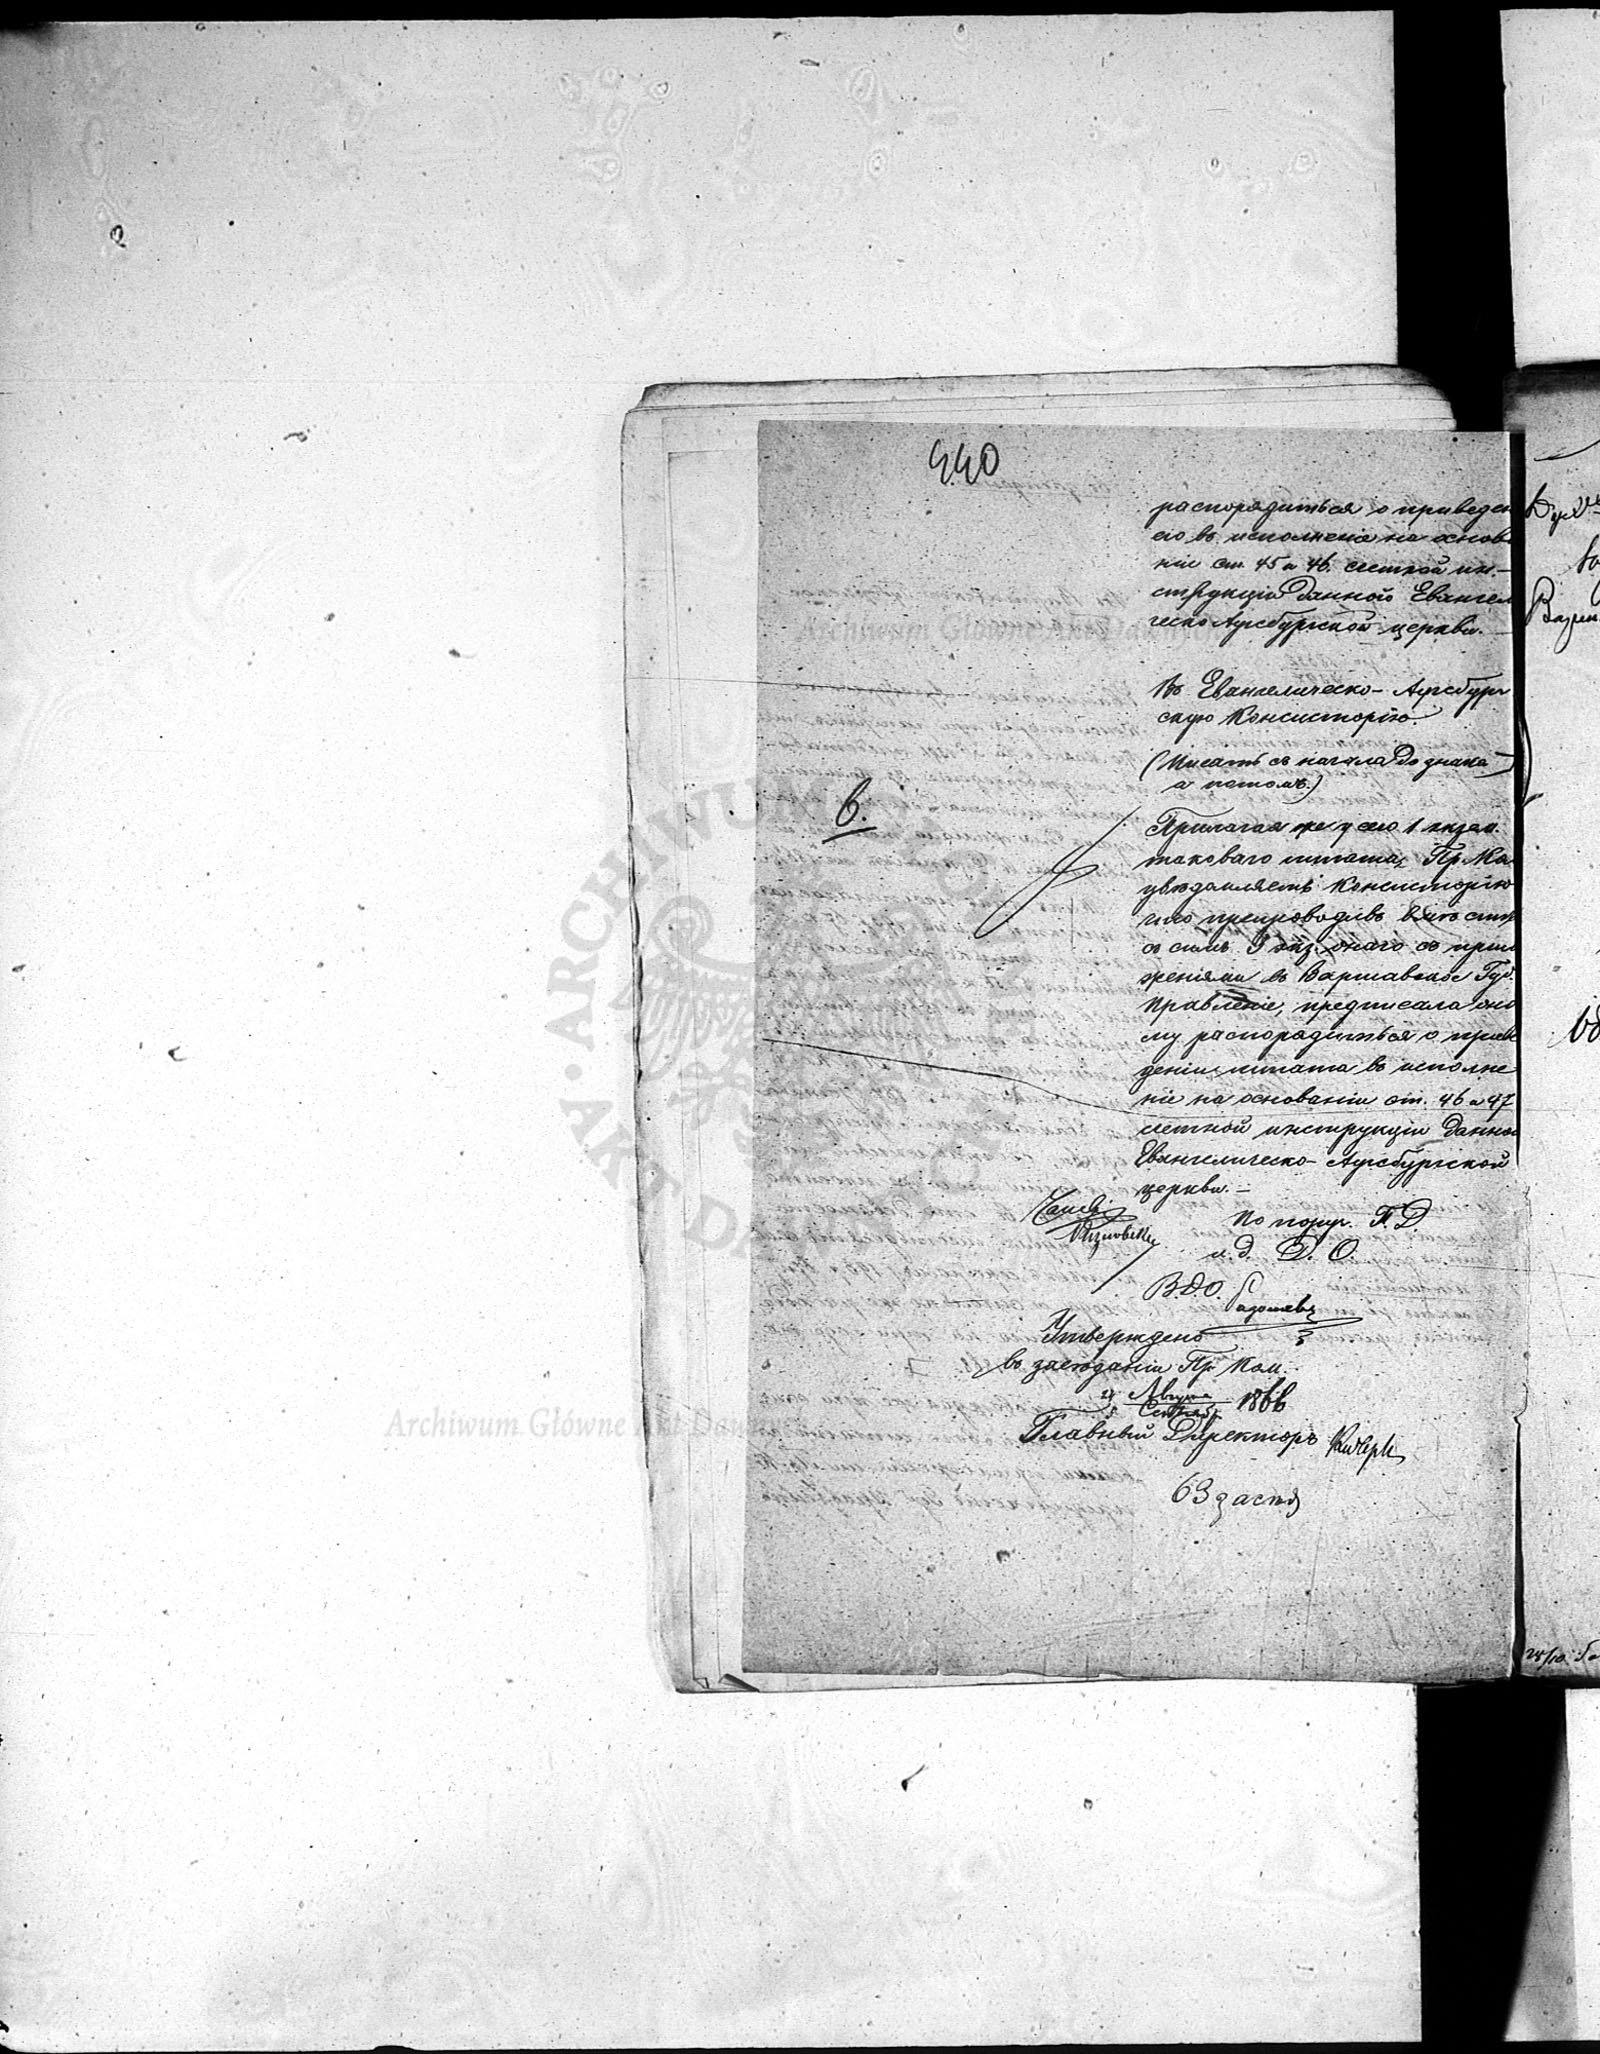 440
распорядиться о приведен
его въ исполненіе на основа
ніи ст. 45 и 46. смѣтной ин-
струкціи данной Евангел
ческо Аугсбургской церкви.
Въ Евангелическо-Аугсбург
скую Консисторію.
(Писать съ начала до знака
а потомъ.)
6.
Прилагая же у сего 1 экзем.
таковаго штата, Пр. Ко
увѣдомляетъ Консисторію
что препроводивъ вмѣстѣ
съ симъ 3 экз. онаго съ прил
женіями въ Варшавское Губ.
Правленіе, предписала оно
му распорядиться о приве
деніи штата въ исполне
ніе на основаніи ст. 46 и 47
смѣтной инструкціи данной
Евангелическо-Аугсбургской
церкви.
По поруч. Г. Д.
и. д. Д. О.
В.Д.О.
Утверждено
въ засѣданіи Пр. Ком.
Августа
Сентяб. 1866
Главный Директоръ
Archiwum Główne Akt Dawnych
Archiwum Główne Akt Dawnych
ARCHIWUM GŁÓWNE AKT DAWNYCH